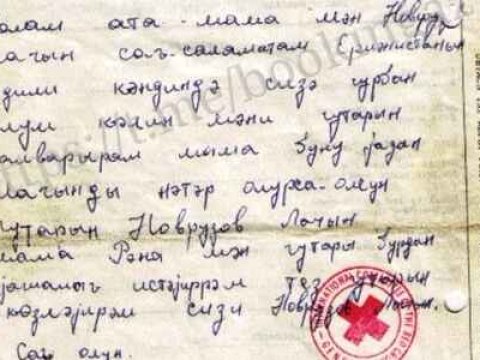 алам ата-мама мән Новруз
лачын сағ-саламатам Ермәнистанын
кәндиндә сизә гурбан
олум кәлин мәни гутарын
јалварырам мама буну јазан
Лачынды нәтәр олурса-олсун
гутарын Новрузов Лачын
мама Рәна мән гутары бурдан
јашамаг истәјирәм тез гутарын
көзләјирәм сизи Новрузов Лачын.
Сағ олун.
https://t.me/book
INTERNATIONAL